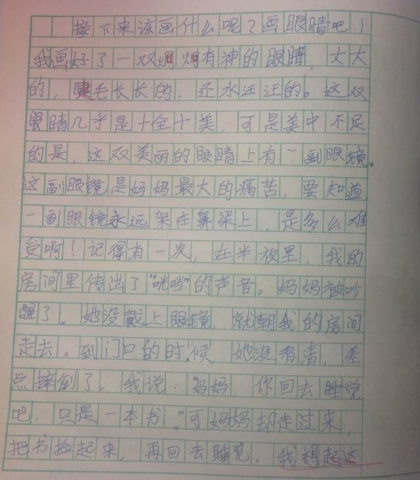 接下来该画什么呢？画眼睛吧！
我画好了一双炯炯有神的眼睛，大大
的，睫毛长长的，还水汪汪的。这双
眼睛几乎是十全十美，可是美中不足
的是，这双美丽的眼睛上有一副眼镜。
这副眼镜是妈妈最大的痛苦，要知道，
一副眼镜永远架在鼻梁上，是多么难
受啊！记得有一次，在半夜里，我的
房间里传出了“咣当”的声音。妈妈被吵
醒了。她没戴上眼镜，就朝我的房间
走去。到门口的时候，她没有看清，差
点摔倒了。我说：“妈妈，你回去睡觉
吧，只是一本书。”可妈妈却走过来，
把书捡起来，再回去睡觉。我想起这